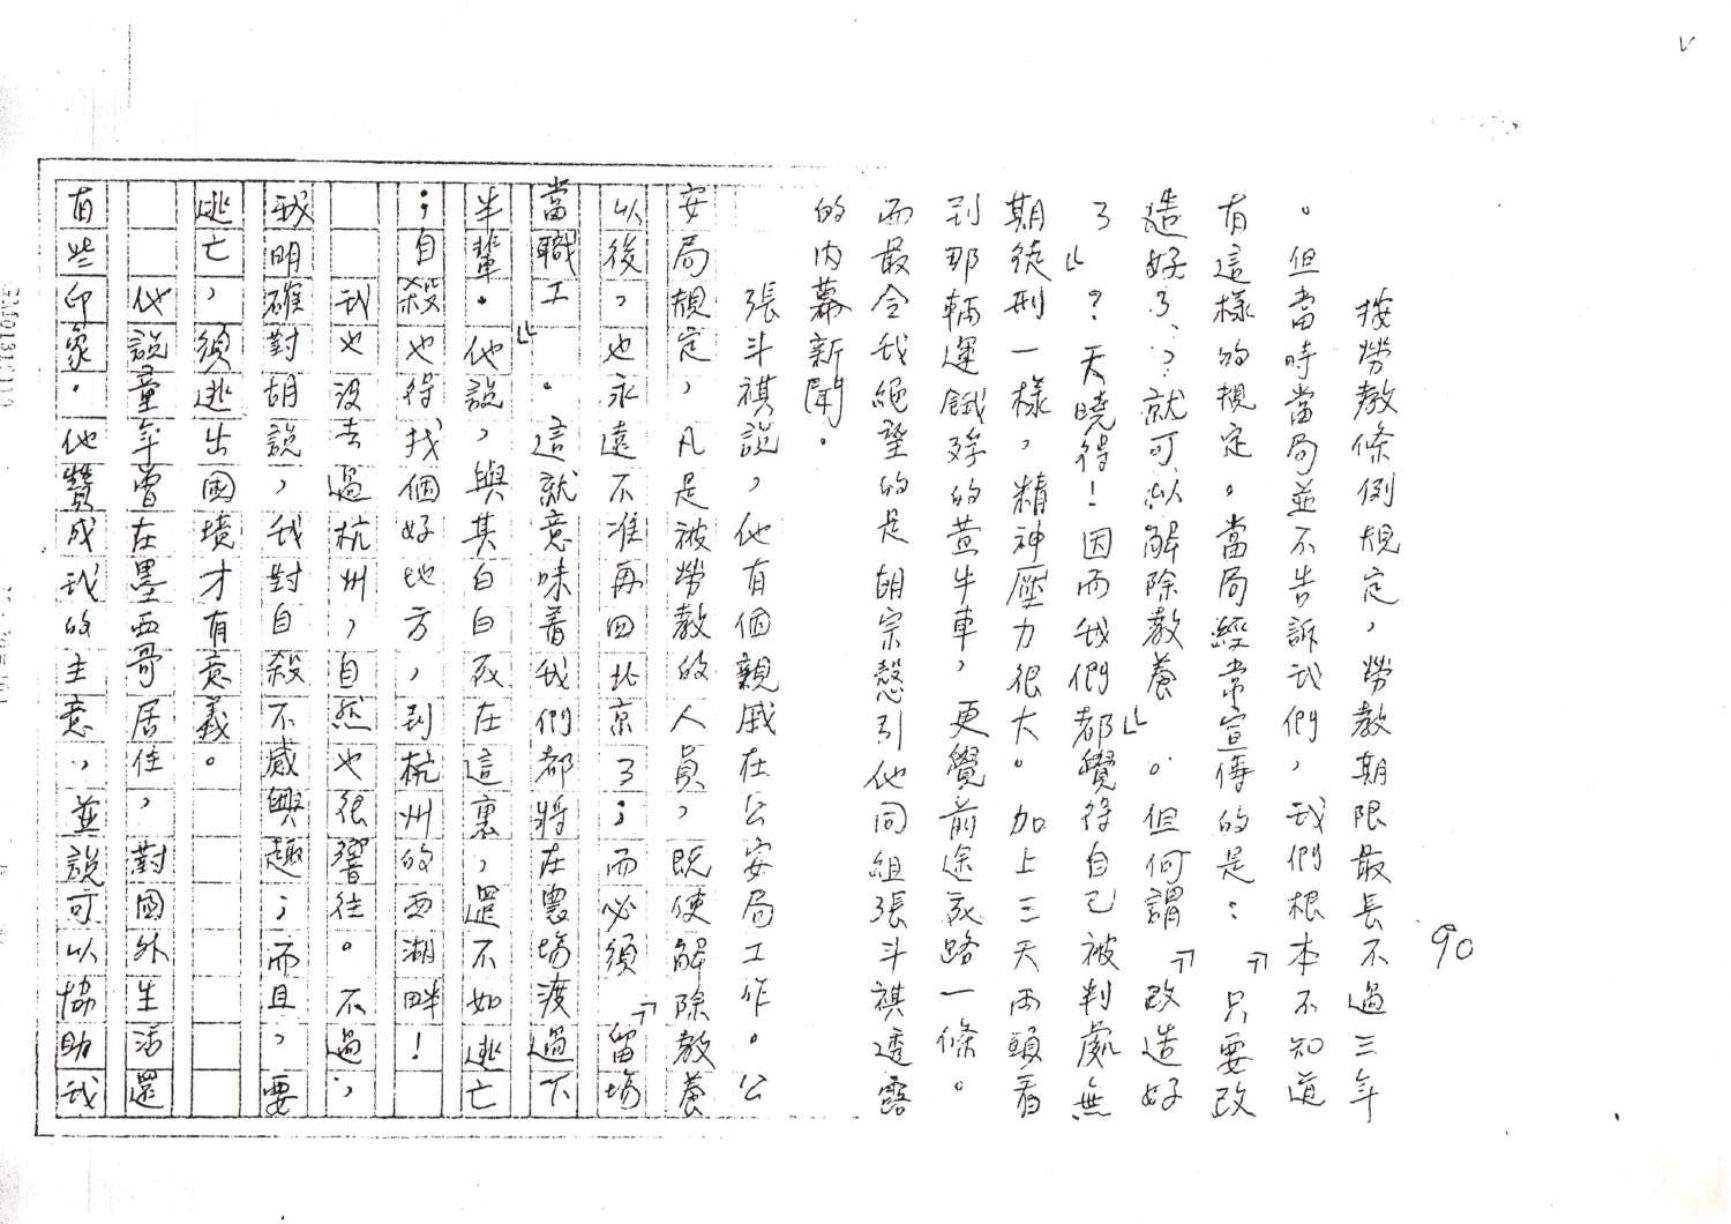 90
按勞教條例規定，勞教期限最長不過三年
。但當時當局並不告訴我們，我們根本不知道
有這樣的規定。當局經常宣傳的是：『只要改
造好了，就可以解除教養』。但何謂『改造好
了』？天曉得！因而我們都覺得自己被判處無
期徒刑一樣，精神壓力很大。加上三天兩頭看
到那輛運餓殍的黃牛車，更覺前途死路一條。
而最令我絕望的是胡宗慇引他同組張斗祺透露
的內幕新聞。
張斗祺說，他有個親戚在公安局工作。公
安局規定，凡是被勞教的人員，既使解除教養
以後，也永遠不准再回北京了；而必須『留場
當職工』。這就意味着我們都將在農場渡過下
半輩。他說，與其白白死在這裏，還不如逃亡
；自殺也得找個好地方，到杭州的西湖畔！
我也沒去過杭州，自然也很嚮往。不過，
我明確對胡說，我對自殺不感興趣；而且，要
逃亡，須逃出國境才有意義。
他說童年曾在墨西哥居住，對國外生活還
有些印象。他贊成我的主意，並說可以協助我